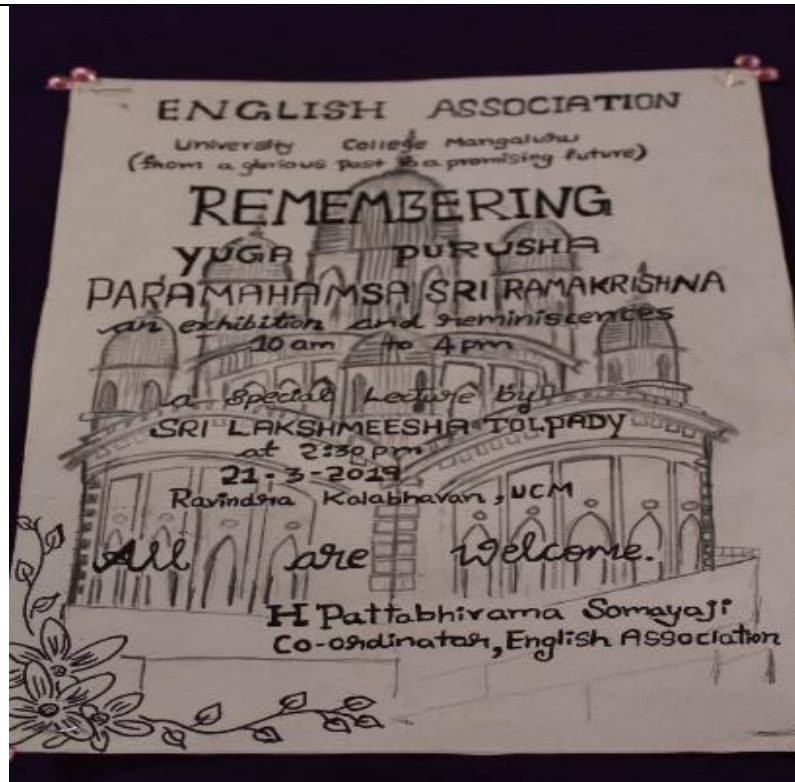 ENGLISH ASSOCIATION
University College Mangaluru
(from a glorious past to a promising future)
REMEMBERING
YUGA PURUSHA
PARAMAHAMSA SRI RAMAKRISHNA
an exhibition and reminiscences
10 am to 4 pm
a special Lecture by
SRI LAKSHMEESHA TOLPADY
at 2:30 pm
21-3-2019
Ravindra Kalabhavan, UCM
All are welcome.
H Pattabhirama Somayaji
Co-ordinator, English Association